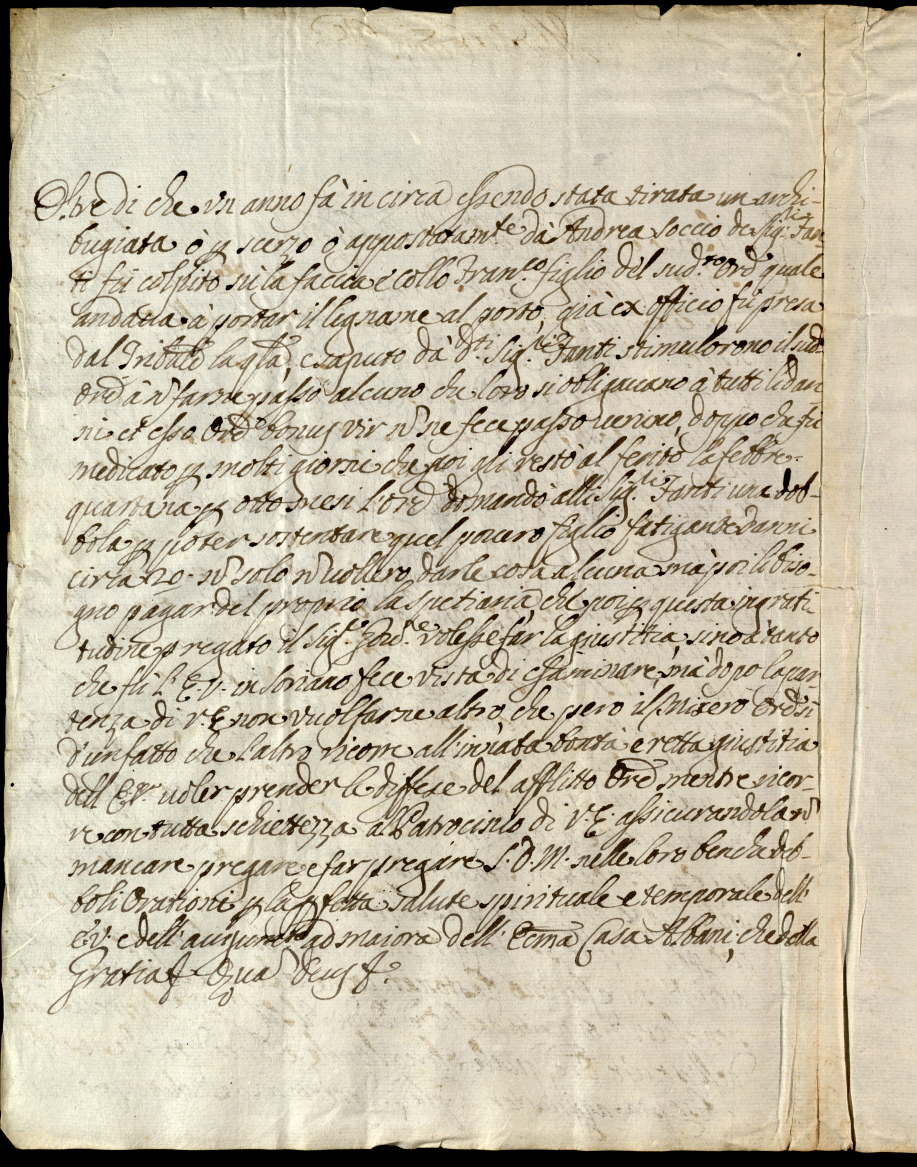 Oltre di che un anno fà in circa essendo stata tirata un archi-
bugiata ò p scerzo ò appostatam.te dà Andrea Soccio de Sig.ri Fan
ti fù colpito sù la faccia e collo Fran.co figlio del sud.to Ore quale
andaua à portar il legname al porto, già ex officio fù presa
dal Tribule la qla, e saputo dà d.ti Sig.ri Fanti stimulorono il sud.
Ore à n farne passo alcuno che loro si obligauano à tutti li dan
ni et esso Ore bonus vir n ne fece passo ueruno, doppo che fù
medicato p molti giorni che poi gli restò al ferito la febbre
quartana p otto mesi l'Ore domandò alli Sig.ri Fanti una dob-
bola p poter sostentare quel pouero figlio fatigante d'anni
circa 20. n solo n uollero darle cosa alcuna mà poi li biso-
gnò pagar del proprio la spetiaria, che poi p questa ingrati
tudine pregato il Sig.r Gou.re volesse far la giustitia, sino à tanto
che fù l'E.V. in Soriano fece vista di essaminare, mà dopo la par
tenza di V.E. non vuol farne altro, che però il misero Ore sì
d'un fatto che l'altro ricorre all'in'ata bontà e retta giustitia
dell'E.V. uoler prender le diffese del afflitto Ore mentre ricor-
re con tutta schiettezza al Patrocinio di V.E. assicurandola n
mancare pregare e far pregare S.D.M. nelle loro benche deb-
boli Orationi p la pfetta salute spirituale e temporale dell'
E.V. e dell' augum.to ad maiora dell' Ecma Casa Albani, che della
Gratia &. Qua Deus &.